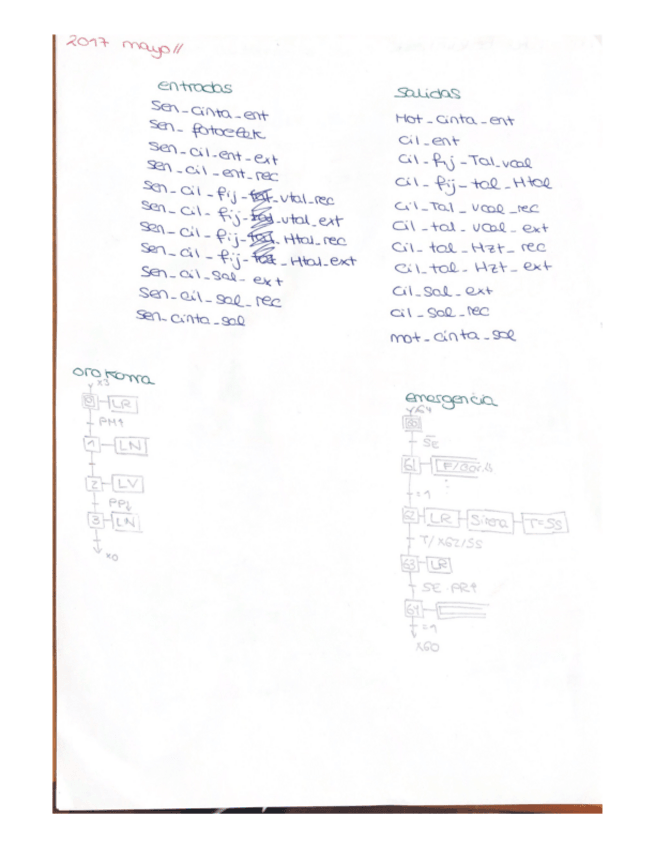 2017 mayo//
entradas
sen_cinta_ent
sen_fotocelk
sen_cil_ent_ext
sen_cil_ent_rec
sen_cil_fij_vtal_rec
sen_cil_fij_vtal_ext
sen_cil_fij_Htal_rec
sen_cil_fij_Htal_ext
sen_cil_sal_ext
sen_cil_sal_rec
sen_cinta_sal
salidas
Mot_cinta_ent
cil_ent
cil_fij_Tal_vcal
cil_fij_tal_Htal
cil_Tal_vcal_rec
cil_tal_vcal_ext
cil_tal_Hzt_rec
cil_tal_Hzt_ext
cil_sal_ext
cil_sal_rec
mot_cinta_sal
x3
0 LR
PM↑
1 LN
2 LV
PP↓
3 LN
x0
emergencia
x64
60
SE
61
=1
62 LR Sirena T=5s
T/x62/5s
63 LR
SE PR↑
64
=1
x60